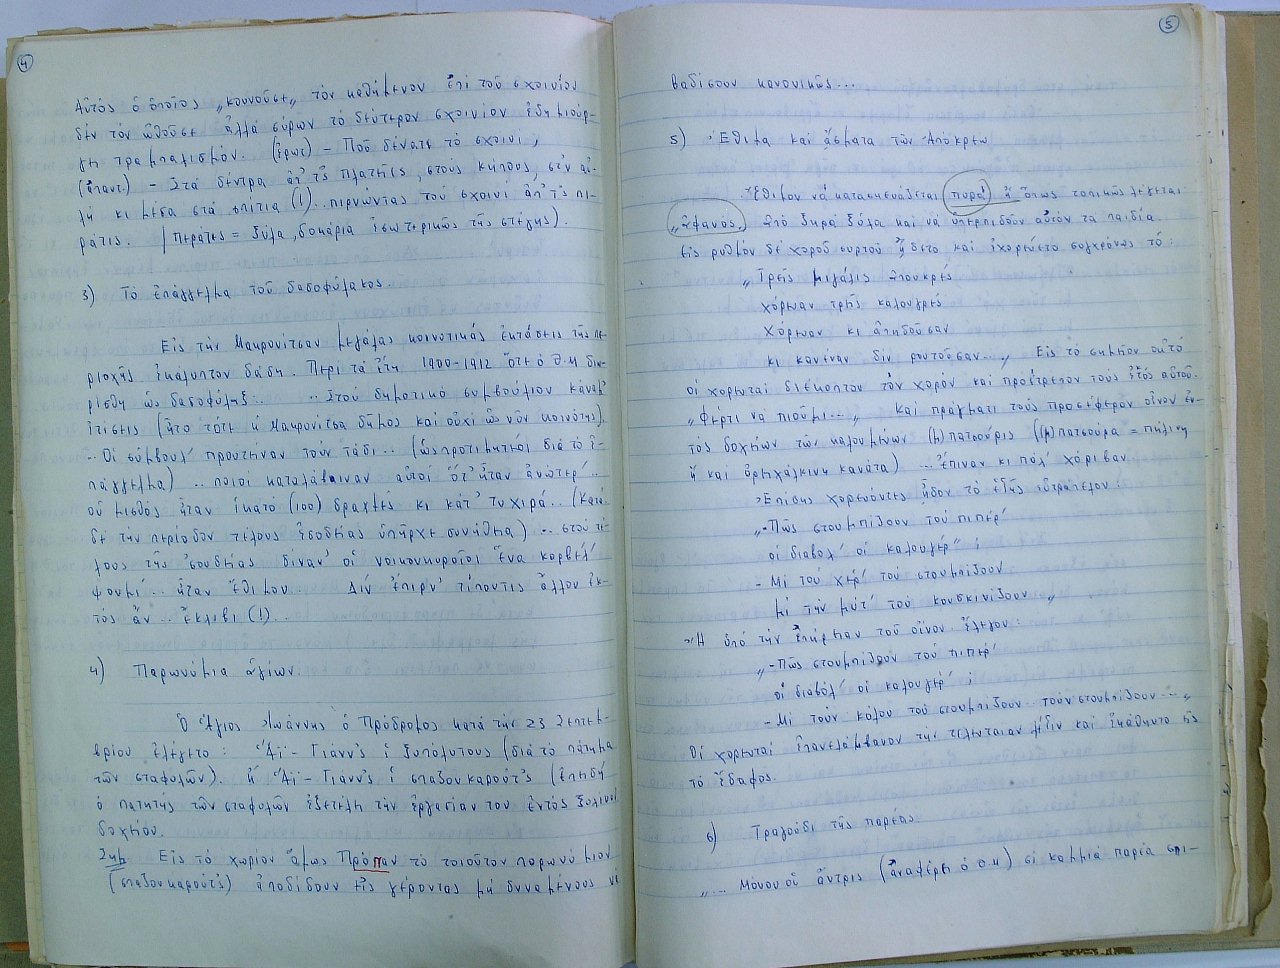 4
Αὐτός ὁ ὁποῖος „κουνοῦσε„ τόν καθήμενον ἐπί τοῦ σχοινίου
δέν τόν ὠθοῦσε ἀλλά σύρων τό δεύτερον σχοινίον ἐδημιούρ-
γει τραμπαλισμόν. (ἐρωτ) - Ποῦ δένατε τό σχοινί;
(ἀπαντ) - Στά δέντρα ἀπ' τ'ς πλατεῖες, στούς κήπους, στ'ν αὐ-
λή κι μέσα στά σπίτια (!).. πιρνώντας τού σχοινί ἀπ' τ'ς πι-
ράτις. (περάτες = ξύλα, δοκάρια ἐσωτερικῶς τῆς στέγης).
3) Τό ἐπάγγελμα τοῦ δασοφύλακος.
Εἰς τήν Μακρυνίτσαν μεγάλας κοινοτικάς ἐκτάσεις τῆς πε-
ριοχῆς ἐκάλυπτον δάση. Περί τά ἔτη 1900-1912 ὅτε ὁ Θ.Μ διω-
ρίσθη ὡς δασοφύλαξ... ..Στού δημοτικό συμβούλιου κάναμ'
ἰτίσεις (ἦτο τότε ἡ Μακρυνίτσα δῆμος καί οὐχί ὡς νῦν κοινότης).
..Οἱ σύμβουλ' προύτειναν τούν τάδι.. (ὡς προτιμητέοι διά τό ἐ-
πάγγελμα) .. ποιοί καταλάβαιναν αὐτοί ὅτ' ἦταν ἀνώτερ'..
οὑ μισθός ἦταν ἑκατό (100) δραχμές κι κάτ' τυχιρά... (Κατά
δέ τήν περίοδον τέλους ἐσοδείας ὑπῆρχε συνήθεια) .. στού τέ-
λους τῆς 'σουδείας δίναν' οἱ νοικουκυραῖοι ἕνα καρβέλ'
ψουμί... ἦταν ἔθιμου.. Δέν ἔπιρν' τίπουτις ἄλλου ἐκ-
τός ἄν .. ἔκλιβι (!)..
4) Παρωνύμια ἁγίων.
Ὁ Ἅγιος Ἰωάννης ὁ Πρόδρομος κατά τήν 23 Σεπτεμ-
βρίου ἐλέγετο: Ἁϊ-Γιάνν'ς ἱ ξυπόλυτους (διά τό πάτημα
τῶν σταφυλῶν). ἤ Ἁϊ-Γιάνν'ς ἱ σπαζουκαρούτ'ς (ἐπειδή
ὁ πατητής τῶν σταφυλῶν ἐξετέλει τήν ἐργασίαν του ἐντός ξυλίνου
δοχείου.
Σημ Εἰς τό χωρίον ὅμως Πρόπαν τό τοιοῦτον παρωνύμιον
(σπαζουκαρούτ'ς) ἀποδίδουν εἰς γέροντας μή δυναμένους νά
5
βαδίσουν κανονικῶς...
5) Ἔθιμα καί ᾄσματα τῶν Ἀπόκρεω
Ἔθιμον νά κατασκευάζεται πυρά ἤ ὅπως τοπικῶς λέγεται
„ἀφανός„ ἀπό ξηρά ξύλα καί νά ὑπερπηδοῦν αὐτόν τα παιδία.
Εἰς ρυθμόν δέ χοροῦ συρτοῦ ᾔδετο καί ἐχορεύετο συγχρόνως τό:
„Τρεῖς μιγάλις Ἀπουκρές
χόριυαν τρεῖς καλουγρές
Χόριυαν κι ἀπηδοῦσαν
κι κανέναν δέν ρουτοῦσαν..„ Εἰς τό σημεῖον αὐτό
οἱ χορευταί διέκοπτον τόν χορόν καί προέτρεπον τούς ἐκτός αὐτοῦ.
„Φέρτι νά πιοῦμι...„ Καί πράγματι τούς προσέφερον οἶνον ἐν-
τός δοχείων τῶν καλουμένων (μ)πατσούρις ((μ)πατσούρα = πήλινη
ἤ καί ὀρειχάλκινη κανάτα) ...ἔπιναν κι πάλ' χόριβαν.
Ἐπίσης χορεύοντες ᾖδον τό ἑξῆς εὐτράπελον:
„-Πῶς στουμπίζουν τού πιπέρ'
οἱ διαβόλ' οἱ καλουγέρ' ;
- Μέ τού χέρ' τού στουμπίζουν
μέ τήν μύτ' τού κουσκινίζουν „
Ἤ ὑπό τήν ἐπήρειαν τοῦ οἴνου ἔλεγον:
„-Πῶς στουμπίζουν τού πιπέρ'
οἱ διαβόλ' οἱ καλουγέρ' ;
- Μέ τούν κώλου τού στουμπίζουν.. τούν στουμπίζουν..„
Οἱ χορευταί ἐπανελάμβανον τήν τελευταίαν λέξιν καί ἐκάθηντο εἰς
τό ἔδαφος.
6) Τραγούδι τῆς παρέας.
„... Μόνου οἱ ἄντρις (ἀναφέρει ὁ Θ.Μ) σί καμμιά παρέα σπι-